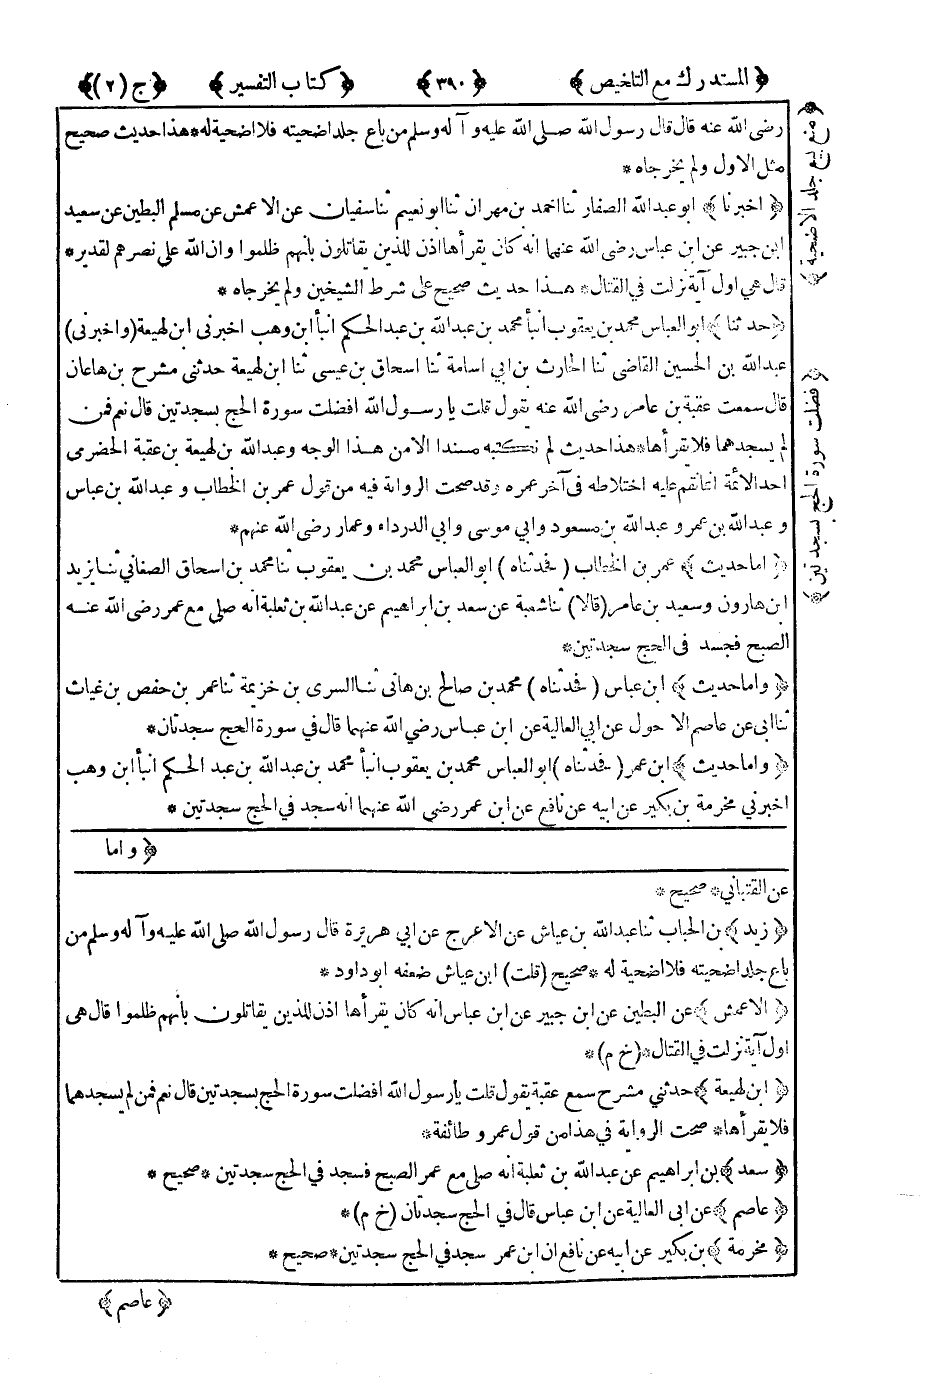 ﴿ المستدرك مع التلخيص ﴾ ﴿ ٣٩٠ ﴾ ﴿ كتاب التفسير ﴾ ﴿ ج (٢) ﴾
رضى الله عنه قال قال رسول الله صلى الله عليه و آله وسلم من باع جلد اضحيته فلا اضحية له * هذا حديث صحيح
مثل الاول ولم يخرجاه *
﴿ اخبرنا ﴾ ابو عبدالله الصفار ثنا احمد بن مهران ثنا ابو نعيم ثنا سفيان عن الاعمش عن مسلم البطين عن سعيد
ابن جبير عن ابن عباس رضى الله عنهما انه كان يقرأها اذن للذين يقاتلون بأنهم ظلموا وان الله على نصرهم لقدير *
قال هى اول آية نزلت في القتال * هذا حديث صحيح على شرط الشيخين ولم يخرجاه *
﴿ حدثنا ﴾ ابو العباس محمد بن يعقوب انبأ محمد بن عبدالله بن عبد الحكم انبأ ابن وهب اخبرنى ابن لهيعة (و اخبرنى)
عبدالله بن الحسين القاضى ثنا الحارث بن ابي اسامة ثنا اسحاق بن عيسى ثنا ابن لهيعة حدثنى مشرح بن هاعان
قال سمعت عقبة بن عامر رضى الله عنه يقول قلت يا رسول الله افضلت سورة الحج بسجدتين قال نعم فمن
لم يسجدهما فلا يقرأها * هذا حديث لم نكتبه مسندا الا من هذا الوجه وعبدالله بن لهيعة بن عقبة الحضرمى
احد الأئمة انما نقم عليه اختلاطه فى آخر عمره وقد صحت الرواية فيه من قول عمر بن الخطاب و عبدالله بن عباس
و عبدالله بن عمر و عبدالله بن مسعود وابي موسى وابي الدرداء وعمار رضى الله عنهم *
﴿ اما حديث ﴾ عمر بن الخطاب ( فحدثناه ) ابو العباس محمد بن يعقوب ثنا محمد بن اسحاق الصغاني ثنا يزيد
ابن هارون وسعيد بن عامر (قالا) ثنا شعبة عن سعد بن ابراهيم عن عبدالله بن ثعلبة انه صلى مع عمر رضى الله عنه
الصبح فجسد فى الحج سجدتين *
﴿ واما حديث ﴾ ابن عباس ( فحدثناه ) محمد بن صالح بن هانى ثنا السرى بن خزيمة ثنا عمر بن حفص بن غياث
ثنا ابى عن عاصم الاحول عن ابي العالية عن ابن عباس رضي الله عنهما قال في سورة الحج سجدتان *
﴿ واما حديث ﴾ ابن عمر ( فحدثناه ) ابو العباس محمد بن يعقوب انبأ محمد بن عبدالله بن عبد الحكم انبأ ابن وهب
اخبرني مخرمة بن بكير عن ابيه عن نافع عن ابن عمر رضى الله عنهما انه سجد في الحج سجدتين *
﴿ واما
عن القتباني * صحيح *
﴿ زيد ﴾ بن الحباب ثنا عبدالله بن عياش عن الاعرج عن ابي هريرة قال رسول الله صلى الله عليه وآله وسلم من
باع جلد اضحيته فلا اضحية له * صحيح (قلت) ابن عياش ضعفه ابو داود *
﴿ الاعمش ﴾ عن البطين عن ابن جبير عن ابن عباس انه كان يقرأها اذن للذين يقاتلون بأنهم ظلموا قال هى
اول آية نزلت في القتال * (خ م) *
﴿ ابن لهيعة ﴾ حدثني مشرح سمع عقبة يقول قلت يا رسول الله افضلت سورة الحج بسجدتين قال نعم فمن لم يسجدهما
فلا يقرأها * صحت الرواية في هذا من قول عمر و طائفة *
﴿ سعد ﴾ بن ابراهيم عن عبدالله بن ثعلبة انه صلى مع عمر الصبح فسجد في الحج سجدتين * صحيح *
﴿ عاصم ﴾ عن ابى العالية عن ابن عباس قال في الحج سجدتان (خ م) *
﴿ مخرمة ﴾ بن بكير عن ابيه عن نافع ان ابن عمر سجد في الحج سجدتين * صحيح *
﴿ عاصم ﴾
﴿ منع بيع جلد الاضحية ﴾
﴿ فضلت سورة الحج بسجدتين ﴾